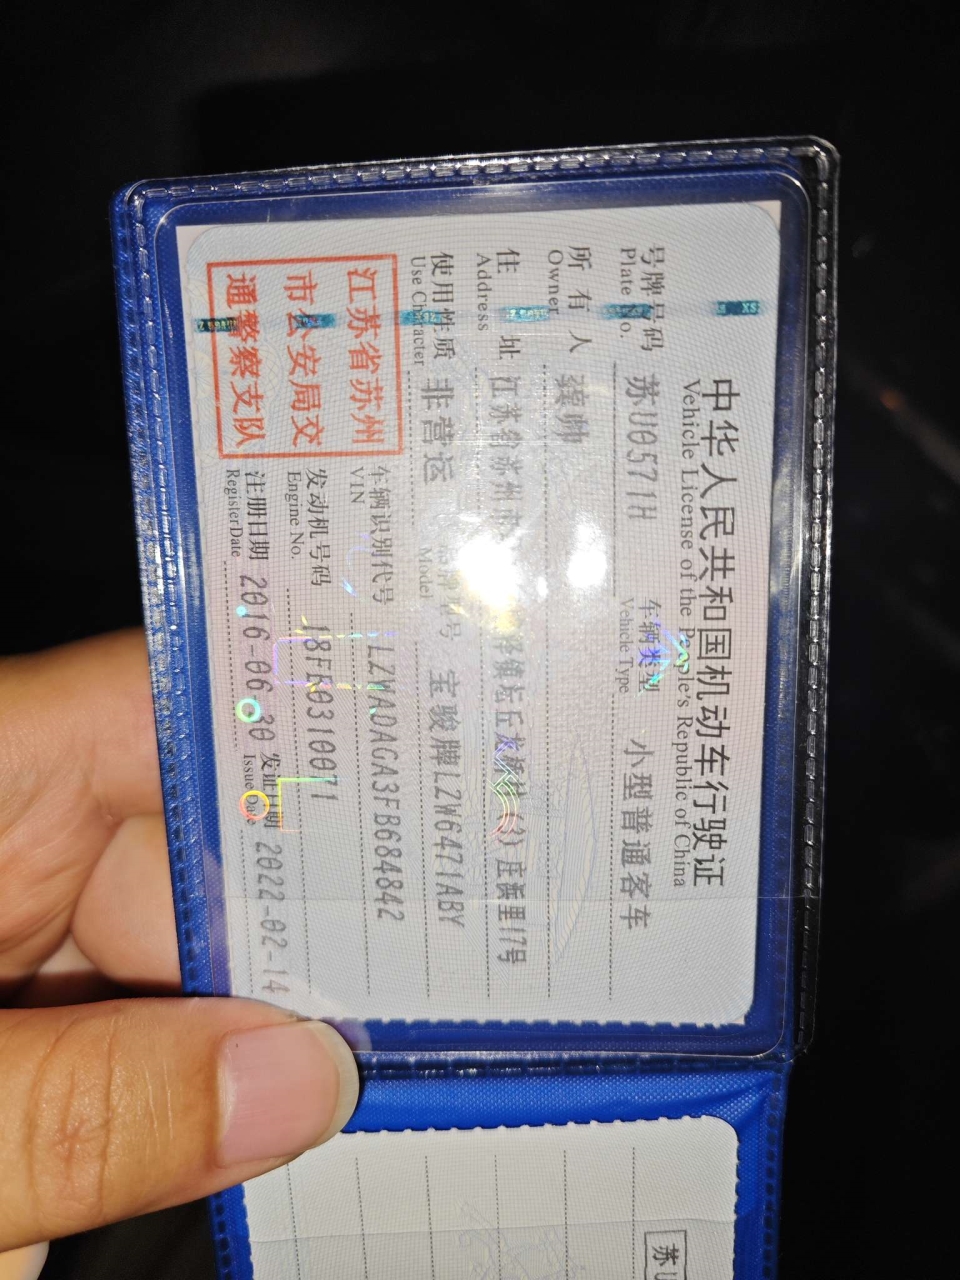 中华人民共和国机动车行驶证
Vehicle License of the People's Republic of China
号牌号码 苏U0571H 车辆类型 小型普通客车
Plate No. Vehicle Type
所有人 龚帅
Owner
住址 江苏省苏州市 泽镇坛丘龙桥村(3)庄西里17号
Address
使用性质 非营运 品牌型号 宝骏牌LZW6471ABY
Use Character Model
江苏省苏州
市公安局交
通警察支队
车辆识别代号 LZWADAGA3FB684842
VIN
发动机号码 18FE0310071
Engine No.
注册日期 2016-06-30 发证日期 2022-02-14
Register Date Issue Date
苏U